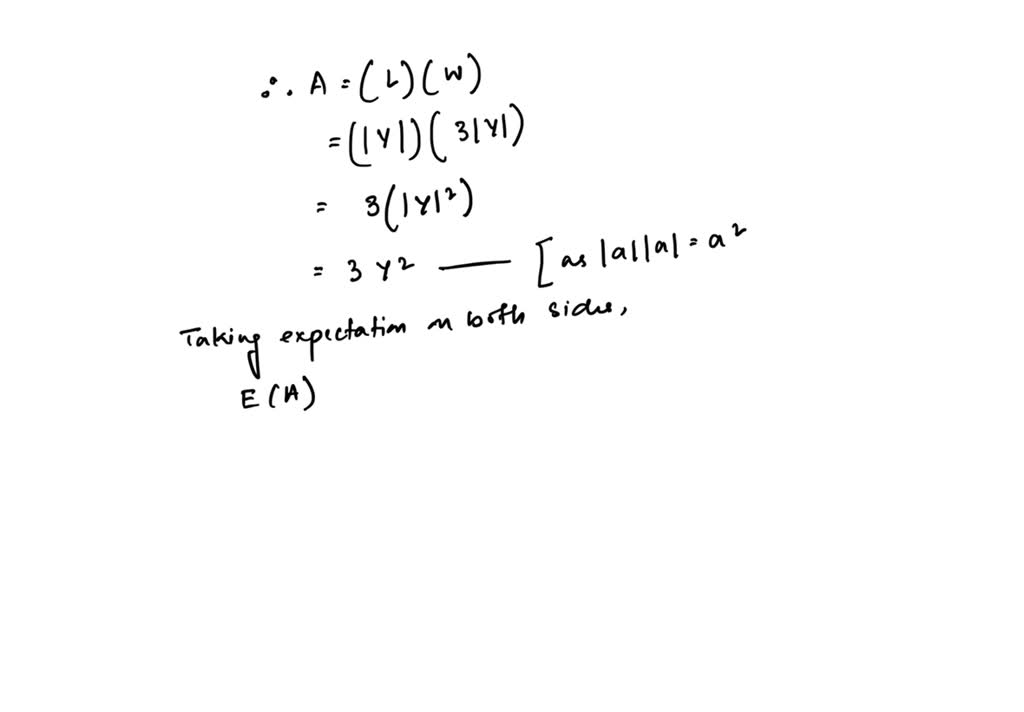 ∴ A = (L)(W)
= (|Y|)(3|Y|)
= 3(|Y|²)
= 3 Y² —— [as |a||a| = a²
Taking expectation on both sides,
E(A)